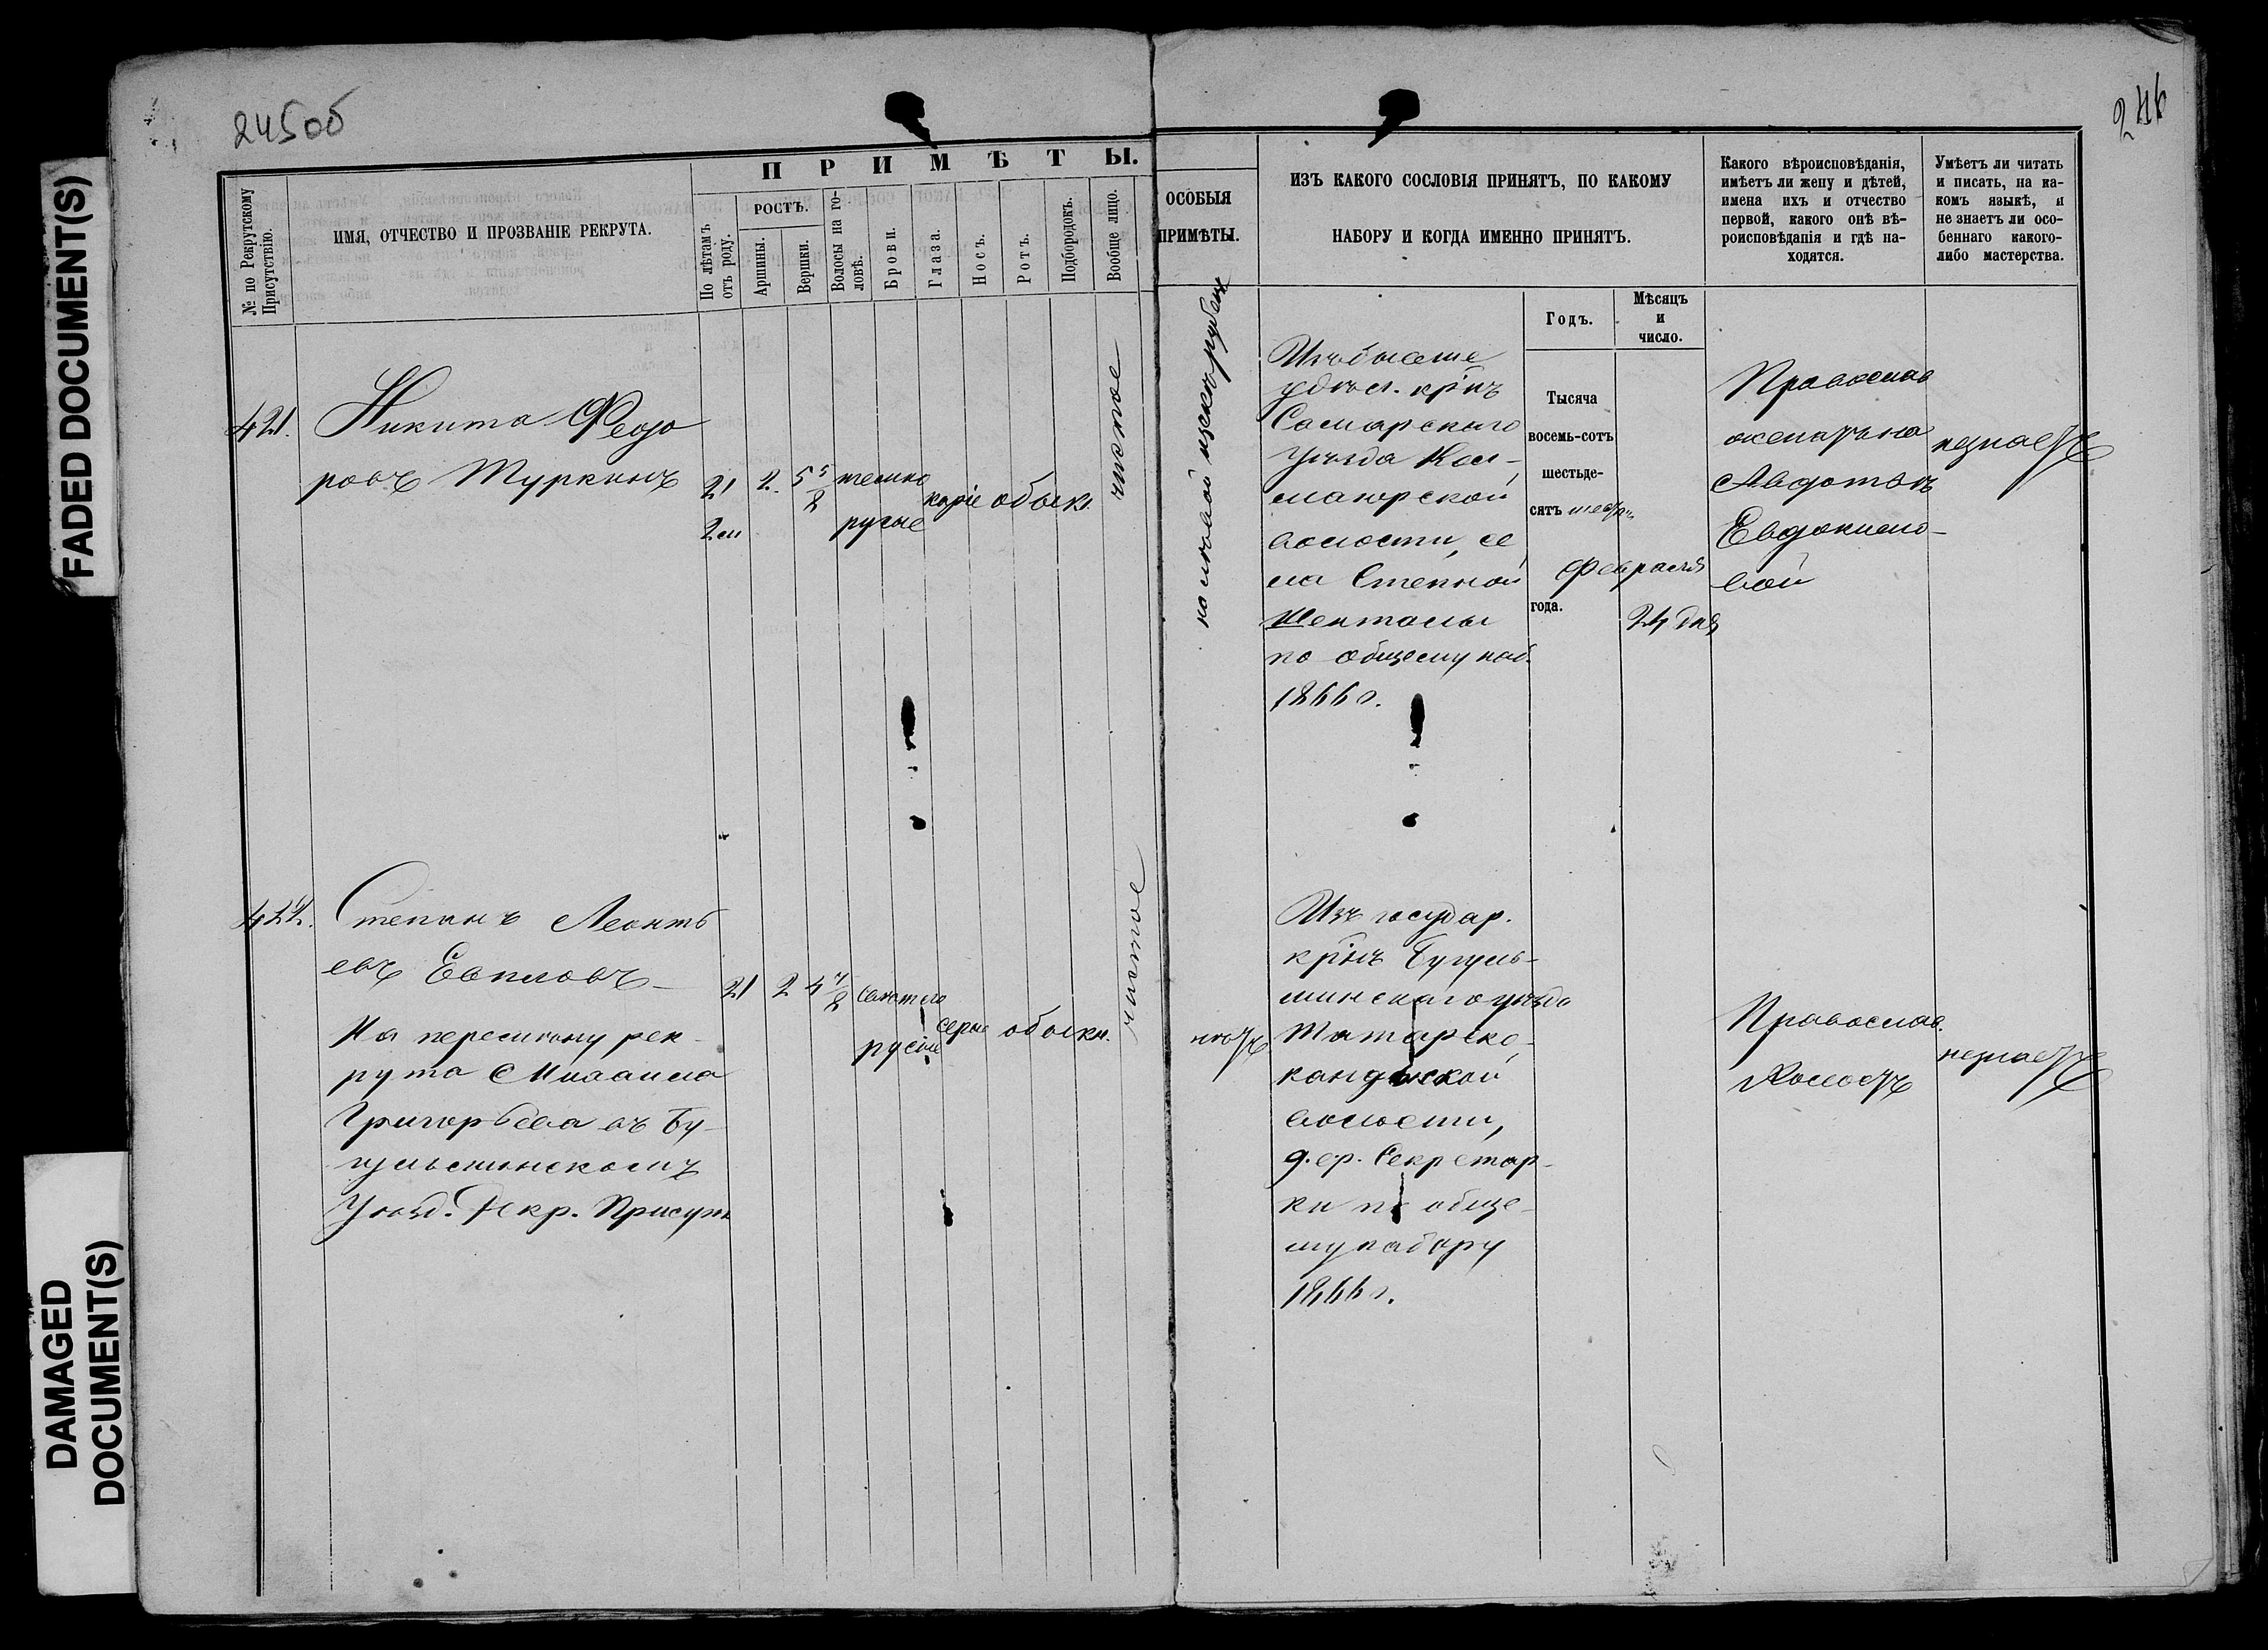 FADED DOCUMENT(S)
DAMAGED
DOCUMENT(S)
245об
246
№ по Рекрутскому
Присутствію.
ИМЯ, ОТЧЕСТВО И ПРОЗВАНІЕ РЕКРУТА.
ПРИМѢТЫ.
По лѣтамъ
отъ роду.
РОСТЪ.
Аршины.
Вершки.
Волосы на го-
ловѣ.
Брови.
Глаза.
Носъ.
Ротъ.
Подбородокъ.
Вообще лицо.
ОСОБЫЯ
ПРИМѢТЫ.
ИЗЪ КАКОГО СОСЛОВІЯ ПРИНЯТЪ, ПО КАКОМУ
НАБОРУ И КОГДА ИМЕННО ПРИНЯТЪ.
Годъ.
Мѣсяцъ
и
число.
Какого вѣроисповѣданія,
имѣетъ ли жену и дѣтей,
имена ихъ и отчество
первой, какого онѣ вѣ-
роисповѣданія и гдѣ на-
ходятся.
Умѣетъ ли читать
и писать, на ка-
комъ языкѣ, и
не знаетъ ли осо-
беннаго какого-
либо мастерства.
421.
Никита Федо
ровъ Туркинъ
21
2 м
2.
5 5/8
темно
русые
каріе
обыкн.
чистое
на лѣвой щекѣ рубецъ
Изъ бывше
удѣл. крнъ
Самарскаго
Уѣзда
волости, се
ла Степной
Шенталы
по общему наб.
1866 г.
Тысяча
восемь-сотъ
шестьде-
сятъ шестаго
года.
Февраля
24 дня
Православ
женатъ на
Авдотьѣ
Евдокимо-
вой
незнаетъ
422.
Степанъ Леонть
евъ Евпловъ
На перемѣну рек-
рута Михаила
Григорьева въ Бу-
гульминскомъ
Уѣзд. Рекр. Присутс
21
2
4 4/8
свѣтло
русые
серые
обыкн.
чистое
нѣтъ
Изъ государ.
крнъ Бугуль-
минскаго уѣзда
Татарско-
кандызской
волости,
дер. Секретар-
ки по обще-
му набору
1866 г.
Православ.
Холостъ
незнаетъ